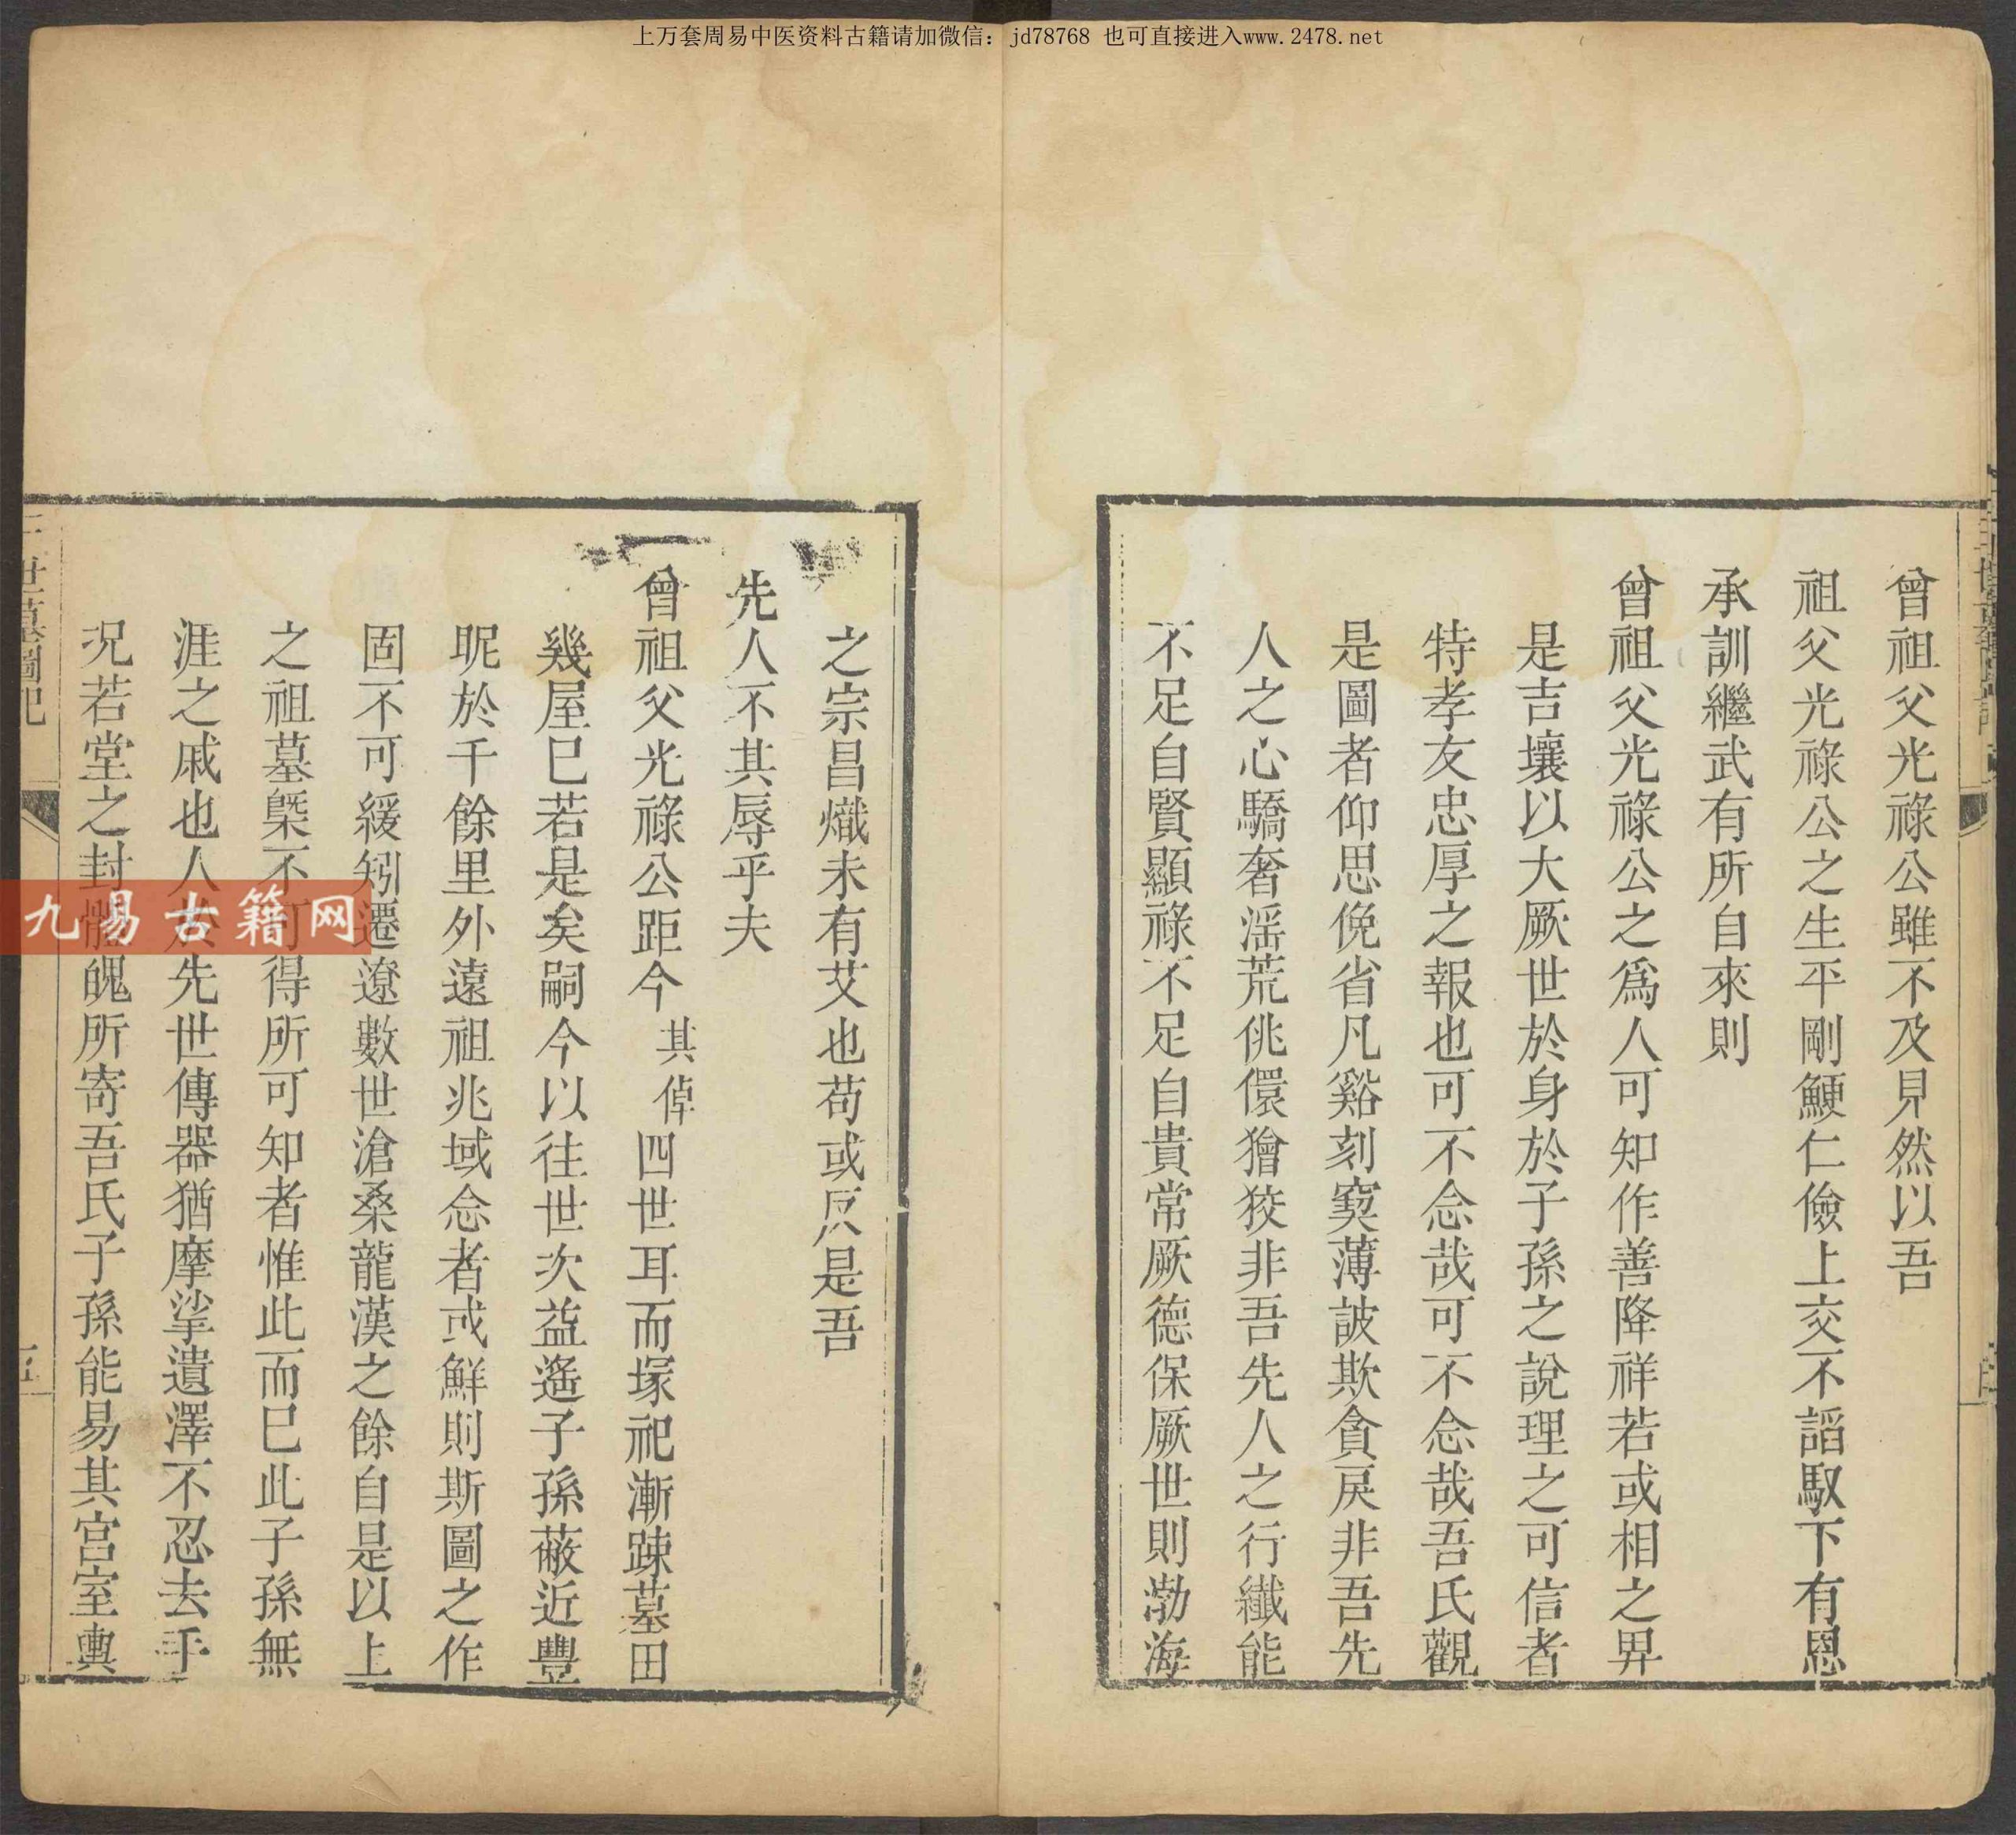 上万套周易中医资料古籍请加微信：jd78768 也可直接进入www.2478.net
曾祖父光祿公雖不及見然以吾
祖父光祿公之生平剛鯁仁儉上交不謟馭下有恩
承訓繼武有所自來則
曾祖父光祿公之爲人可知作善降祥若或相之畀
是吉壤以大厥世於身於子孫之說理之可信者
特孝友忠厚之報也可不念哉可不念哉吾氏觀
是圖者仰思俛省凡谿刻䆕薄詖欺貪戾非吾先
人之心驕奢滛荒佻儇獪狡非吾先人之行纖能
不足自賢顯祿不足自貴常厥德保厥世則渤海
之宗昌熾未有艾也苟或反是吾
先人不其辱乎夫
曾祖父光祿公距今其倬四世耳而塚祀漸踈墓田
幾屋巳若是矣嗣今以往世次益遙子孫蔽近豐
昵於千餘里外遠祖兆域念者或鮮則斯圖之作
固不可緩矧遷遼數世滄桑龍漢之餘自是以上
之祖墓槩不可得所可知者惟此而巳此子孫無
涯之戚也人於先世傳器猶摩挲遺澤不忍去手
况若堂之封體魄所寄吾氏子孫能易其宫室輿
三世墓圖記
五
九易古籍网